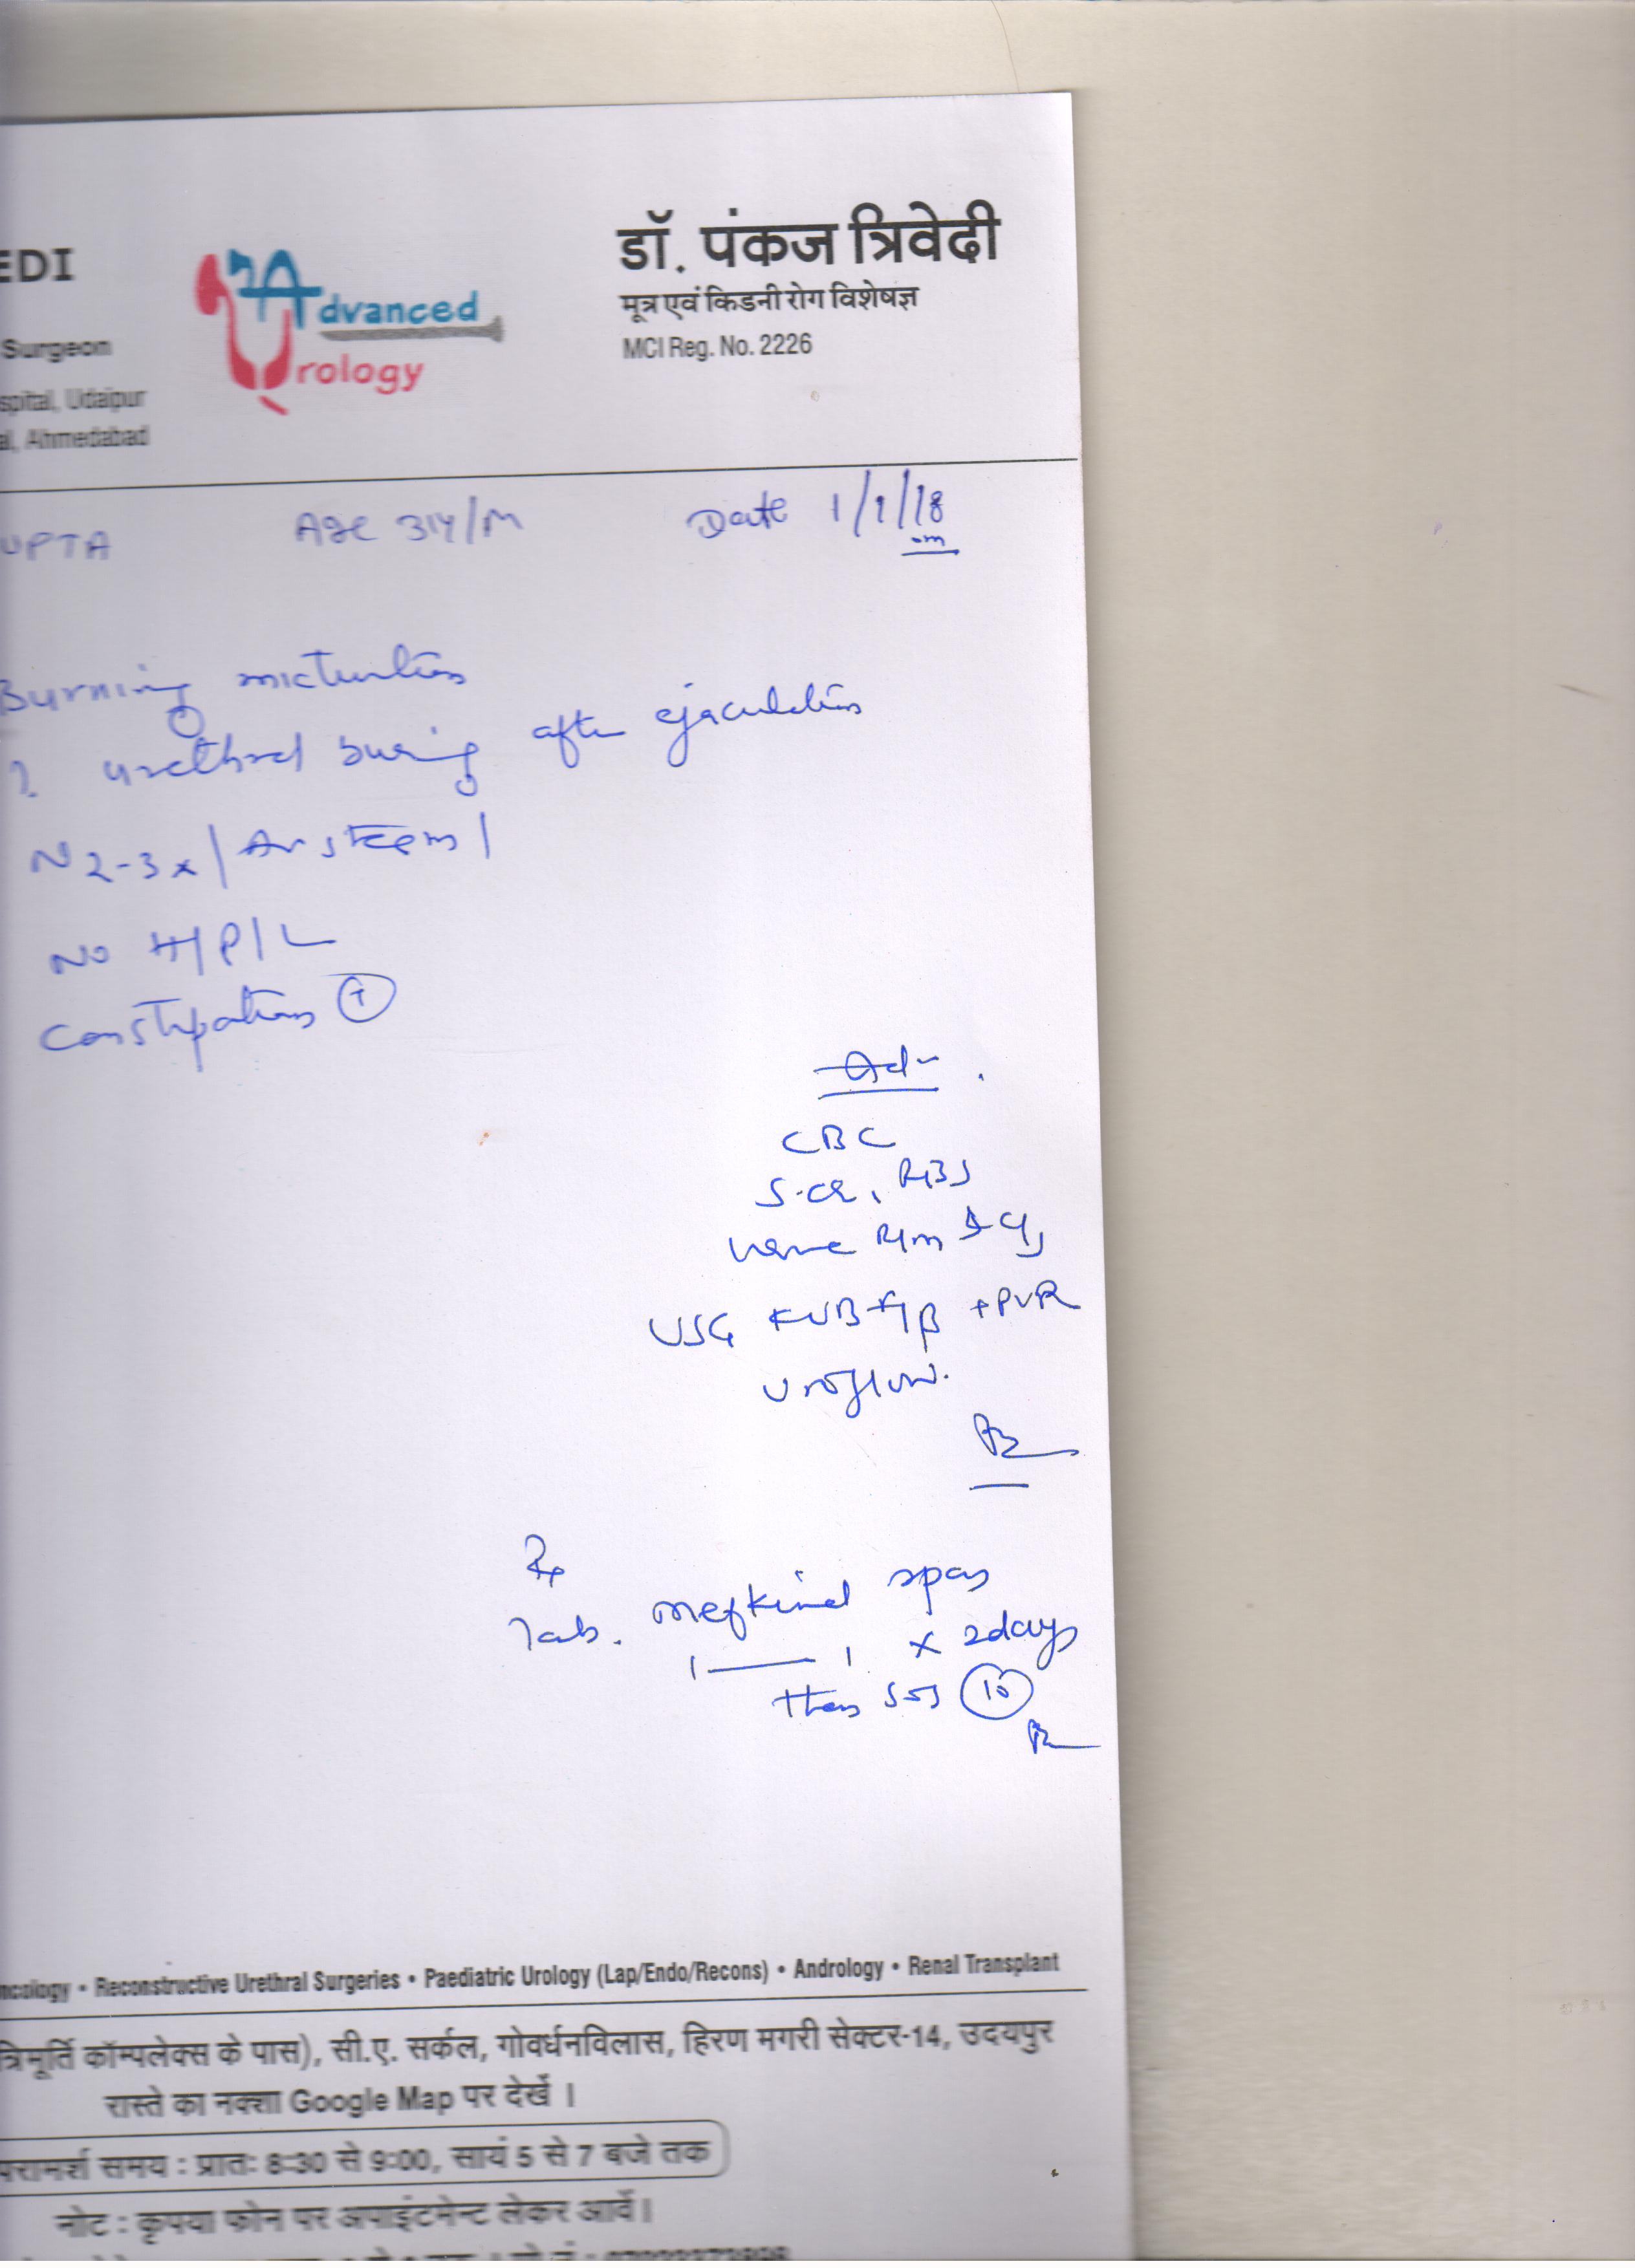 EDI
Surgeon
spital, Udaipur
al, Ahmedabad
Advanced
Urology
डॉ. पंकज त्रिवेदी
मूत्र एवं किडनी रोग विशेषज्ञ
MCI Reg. No. 2226
UPTA Age 31Y/M Date 1/1/18
Burning micturition
urethral buring after ejaculation
N 2-3x /
No H/P/L
Constipation +
Adv
CBC
S.CR, RBS
Urine R/m & C/s
USG KUB + PVR
Uroflow.
Rx
Tab. mefkind spas
1 — 1 x 2days
then SOS 10
ncology • Reconstructive Urethral Surgeries • Paediatric Urology (Lap/Endo/Recons) • Andrology • Renal Transplant
त्रिमूर्ति कॉम्पलेक्स के पास), सी.ए. सर्कल, गोवर्धनविलास, हिरण मगरी सेक्टर-14, उदयपुर
रास्ते का नक्शा Google Map पर देखें ।
परामर्श समय : प्रातः 8:30 से 9:00, सायं 5 से 7 बजे तक
नोट : कृपया फोन पर अपाइंटमेन्ट लेकर आवें।